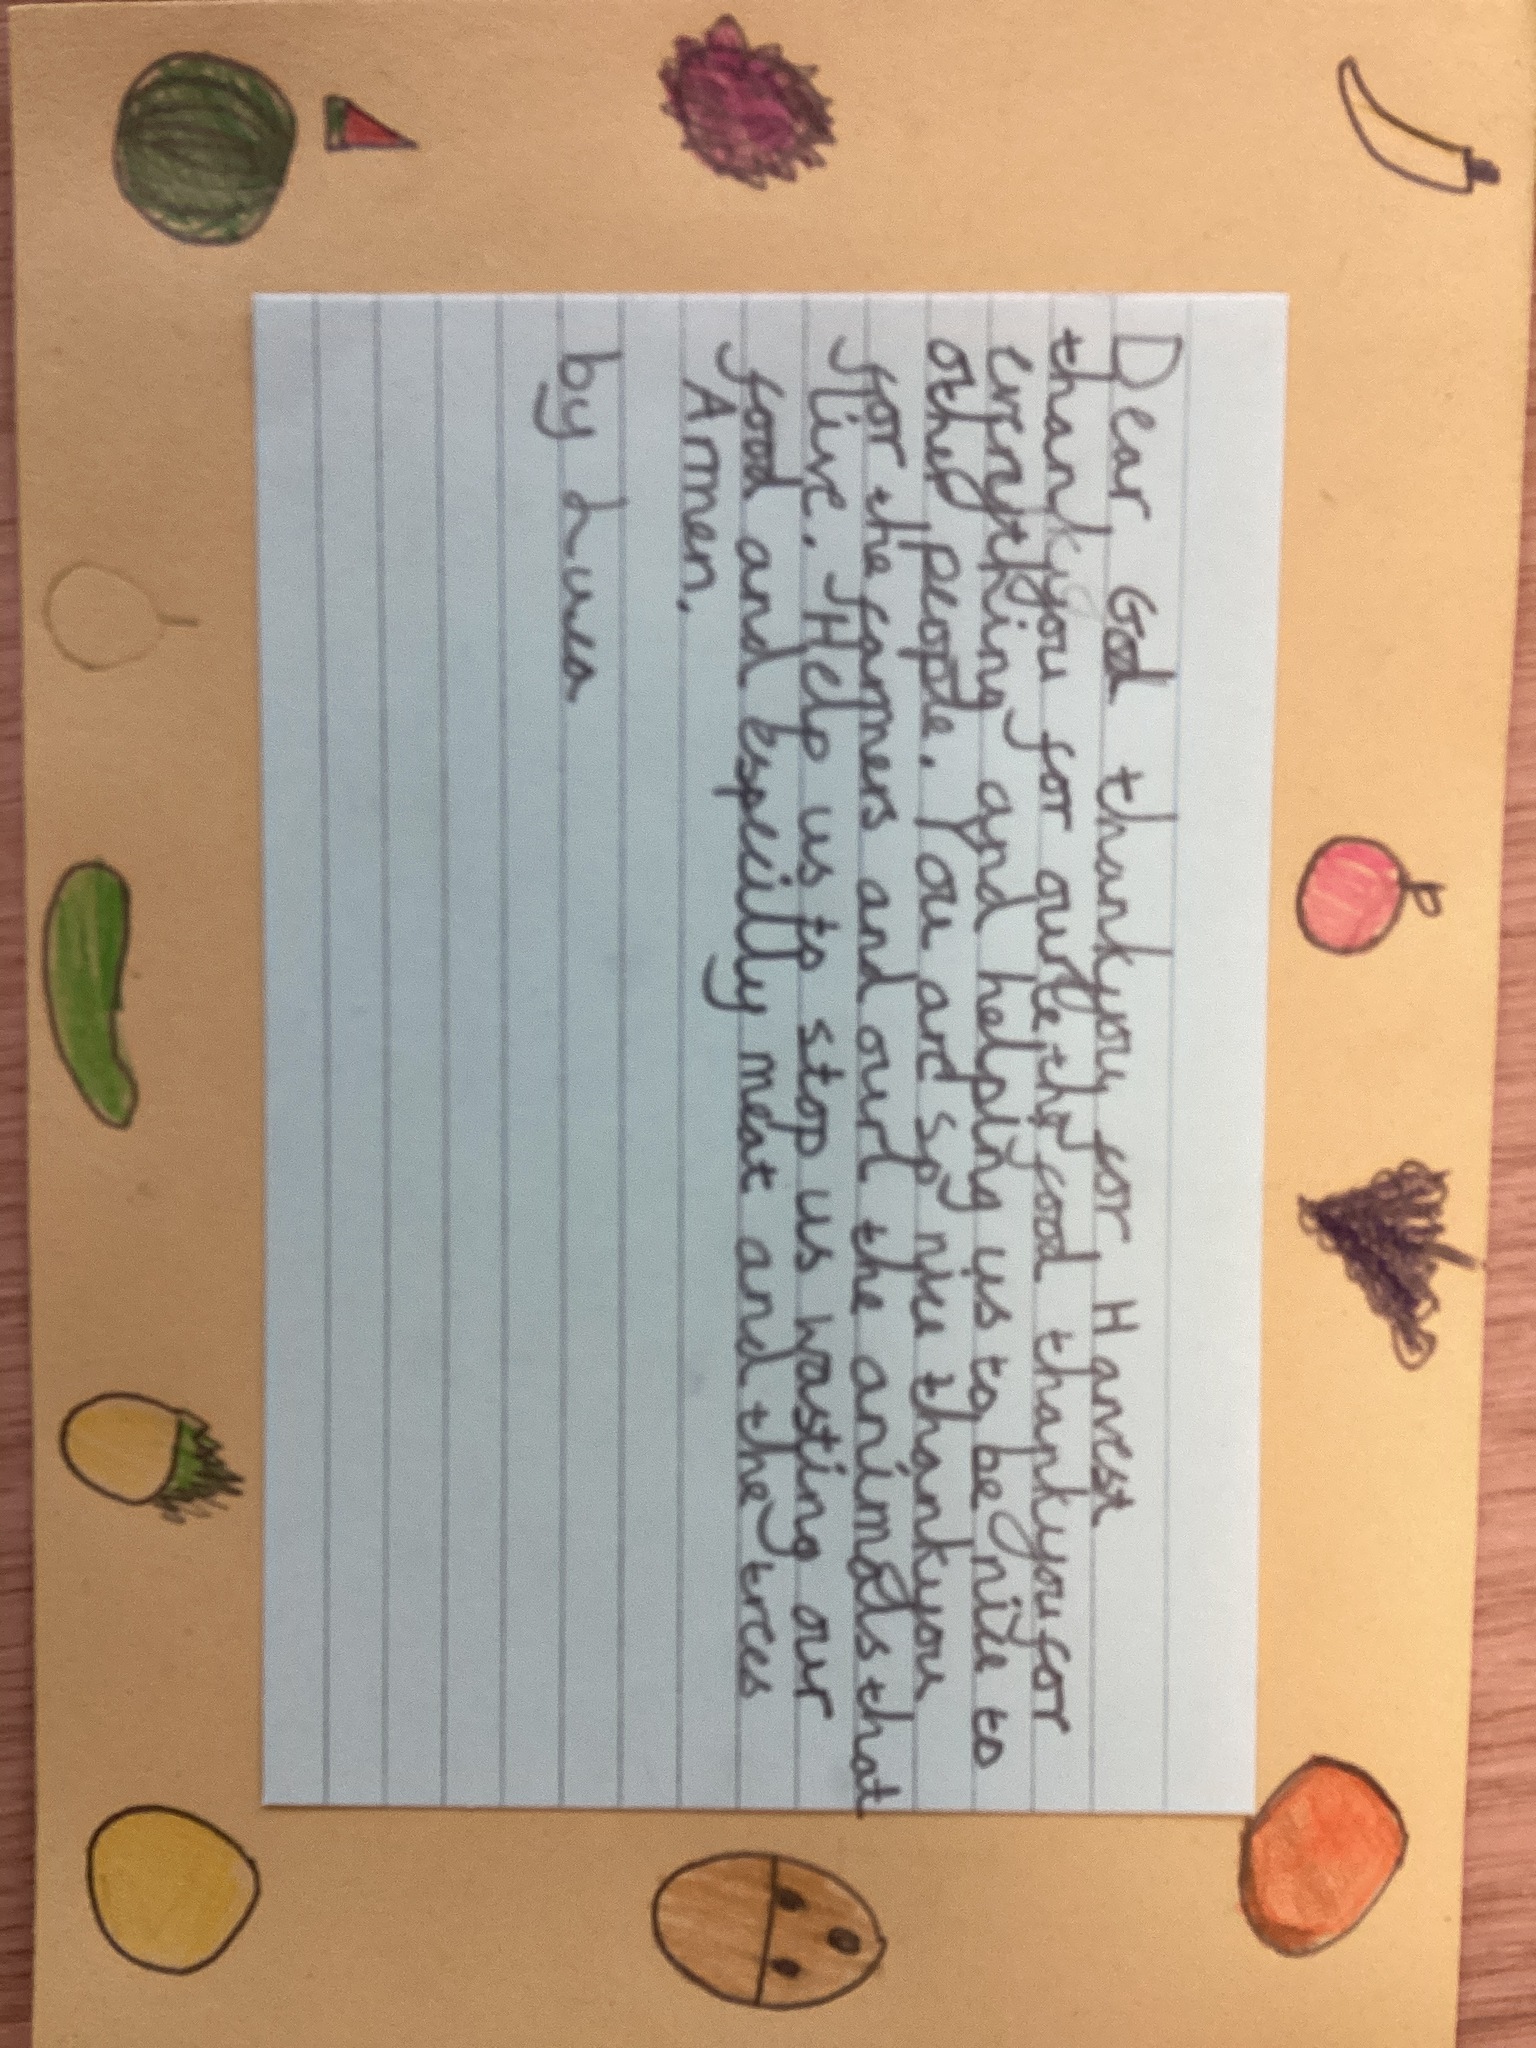 Dear God thankyou for Harvest
thankyou for our the food thankyou for
everything and helping us to be nice to
other people. You are so nice thankyou
for the farmers and our the animals that
live. Help us to stop us wasting our
food and espeiclly meat and the trees
Armen.
by Luca